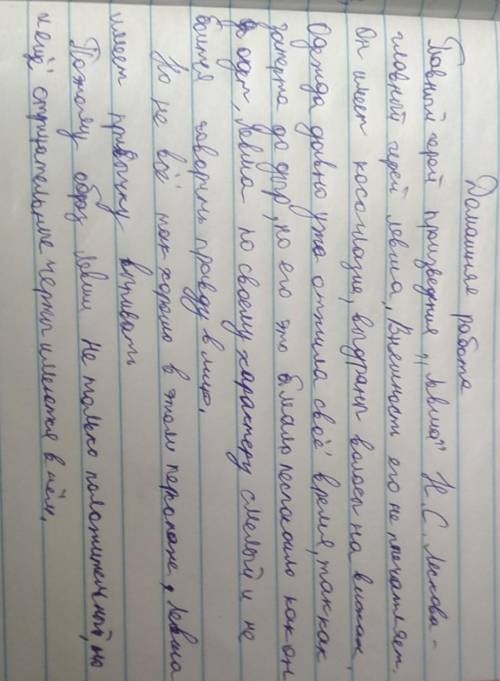 Домашняя работа
Главный герой произведения "Левша" Н.С. Лескова -
главный герой левша. Внешность его не впечатляет.
Он имеет косоглазие, выдраны волосы на висках.
Одежда давно уже отжила своё время, так как
затерта до дыр, но его это мало беспокоило как он
одет, Левша по своему характеру смелый и не
боится говорить правду в лицо.
Но не всё так хорошо в этом персонаже, Левша
имеет привычку выпивать
Поэтому образ Левши не только положительный, но
и ещё отрицательные черты имеются в нём.